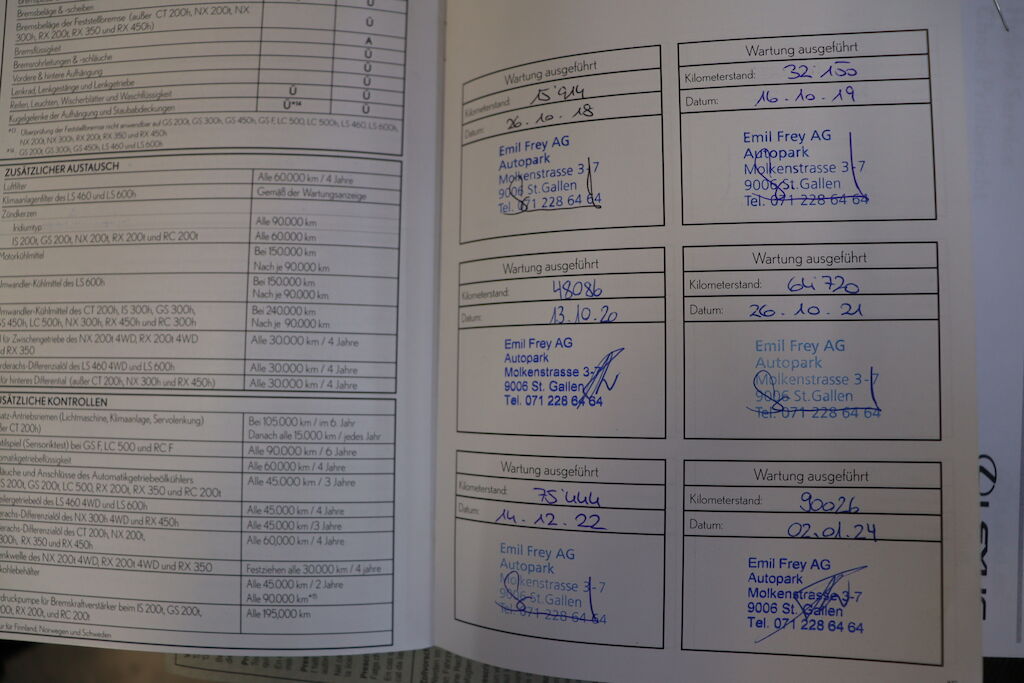 Bremsbeläge & -scheiben Ü
Bremsbeläge der Feststellbremse (außer CT 200h, NX 200t, NX
300h, RX 200t, RX 350 und RX 450h) Ü
Bremsflüssigkeit A
Bremsrohrleitungen & -schläuche Ü
Vordere & hintere Aufhängung Ü
Lenkrad, Lenkgestänge und Lenkgetriebe Ü
Reifen, Leuchten, Wischerblätter und Waschflüssigkeit Ü Ü
Kugelgelenke der Aufhängung und Staubabdeckungen Ü*¹⁴ Ü
Überprüfung der Feststellbremse nicht anwendbar auf GS 200t, GS 300h, GS 450h, GS F, LC 500, LC 500h, LS 460, LS 600h,
NX 200t, NX 300h, RX 200t, RX 350 und RX 450h
GS 200t, GS 300h, GS 450h, LS 460 und LS 600h
ZUSÄTZLICHER AUSTAUSCH
Luftfilter Alle 60.000 km / 4 Jahre
Klimaanlagenfilter des LS 460 und LS 600h Gemäß der Wartungsanzeige
Zündkerzen
Iridiumtyp Alle 90.000 km
IS 200t, GS 200t, NX 200t, RX 200t und RC 200t Alle 60.000 km
Motorkühlmittel Bei 150.000 km
Nach je 90.000 km
mwandler-Kühlmittel des LS 600h Bei 150.000 km
Nach je 90.000 km
mwandler-Kühlmittel des CT 200h, IS 300h, GS 300h, Bei 240.000 km
S 450h, LC 500h, NX 300h, RX 450h und RC 300h Nach je 90.000 km
für Zwischengetriebe des NX 200t 4WD, RX 200t 4WD Alle 30.000 km / 4 Jahre
RX 350
rderachs-Differenzialöl des LS 460 4WD und LS 600h Alle 30.000 km / 4 Jahre
für hinteres Differential (außer CT 200h, NX 300h und RX 450h) Alle 30.000 km / 4 Jahre
USÄTZLICHE KONTROLLEN
satz-Antriebsriemen (Lichtmaschine, Klimaanlage, Servolenkung) Bei 105.000 km / im 6. Jahr
er CT 200h) Danach alle 15.000 km / jedes Jahr
tilspiel (Sensoriktest) bei GS F, LC 500 und RC F Alle 90.000 km / 6 Jahre
omatikgetriebeflüssigkeit Alle 60.000 km / 4 Jahre
äuche und Anschlüsse des Automatikgetriebeölkühlers Alle 45.000 km / 3 Jahre
S 200t, GS 200t, LC 500, RX 200t, RX 350 und RC 200t
eilergetriebeöl des LS 460 4WD und LS 600h Alle 45.000 km / 4 Jahre
erachs-Differenzialöl des NX 300h 4WD und RX 450h Alle 45.000 km /3 Jahre
erachs-Differenzialöl des CT 200h, NX 200t, Alle 60,000 km / 4 Jahre
300h, RX 350 und RX 450h
enkwelle des NX 200t 4WD, RX 200t 4WD und RX 350 Festziehen alle 30.000 km / 4 jahre
kohlebehälter Alle 45.000 km / 2 Jahre
Alle 90.000 km
druckpumpe für Bremskraftverstärker beim IS 200t, GS 200t, Alle 195,000 km
200t, RX 200t und RC 200t
ur für Finnland, Norwegen und Schweden
Wartung ausgeführt
Kilometerstand: 15'914
Datum: 26.10.18
Emil Frey AG
Autopark
Molkenstrasse 3-7
9006 St.Gallen
Tel. 071 228 64 64
Wartung ausgeführt
Kilometerstand: 32'150
Datum: 16.10.19
Emil Frey AG
Autopark
Molkenstrasse 3-7
9006 St.Gallen
Tel. 071 228 64 64
Wartung ausgeführt
Kilometerstand: 48086
Datum: 13.10.20
Emil Frey AG
Autopark
Molkenstrasse 3-7
9006 St. Gallen
Tel. 071 228 64 64
Wartung ausgeführt
Kilometerstand: 64'720
Datum: 26.10.21
Emil Frey AG
Autopark
Molkenstrasse 3-7
9006 St.Gallen
Tel. 071 228 64 64
Wartung ausgeführt
Kilometerstand: 75'444
Datum: 14.12.22
Emil Frey AG
Autopark
Molkenstrasse 3-7
9006 St.Gallen
Tel. 071 228 64 64
Wartung ausgeführt
Kilometerstand: 90026
Datum: 02.01.24
Emil Frey AG
Autopark
Molkenstrasse 3-7
9006 St. Gallen
Tel. 071 228 64 64